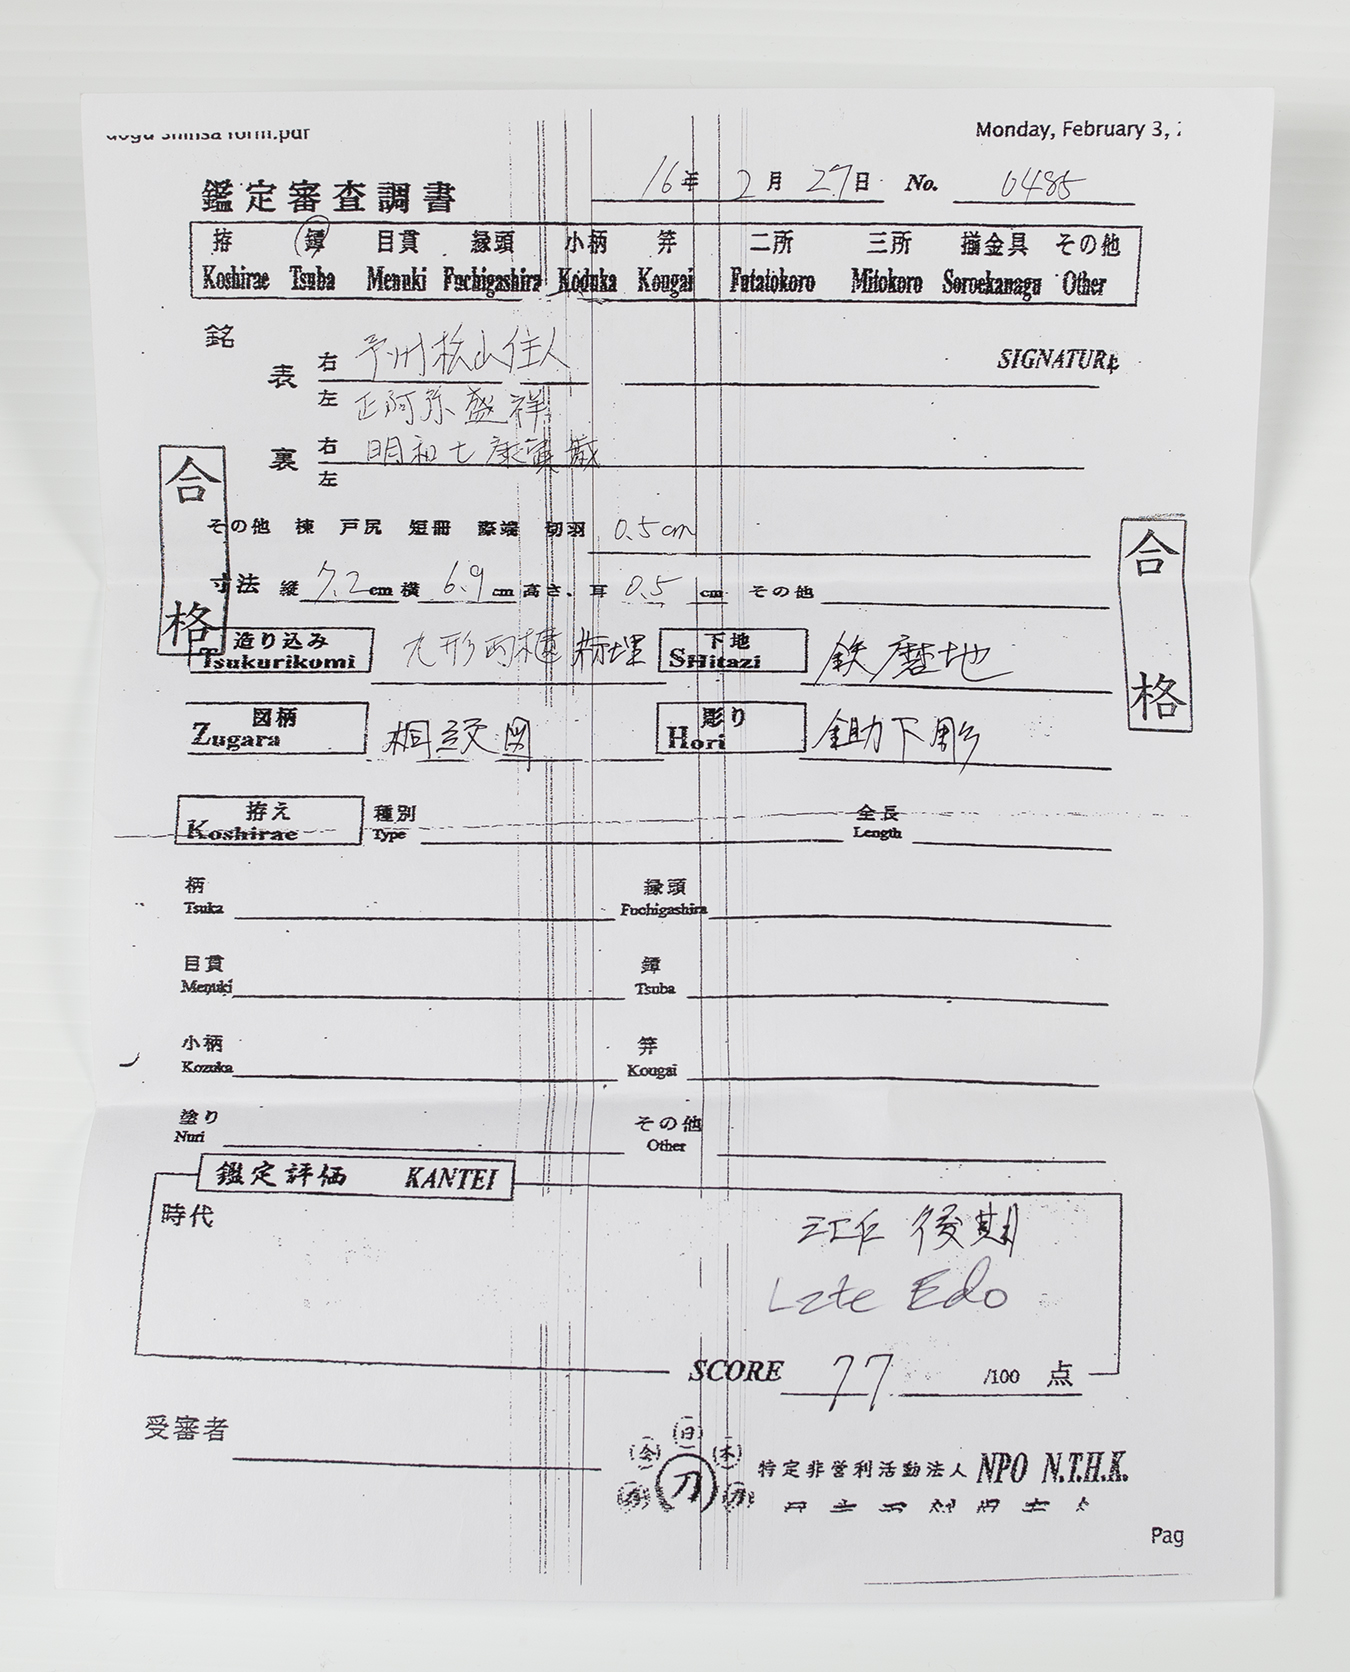 Monday, February 3,
鑑定審査調書 16年 2月 27日 No. 0485
拵 鐔 目貫 縁頭 小柄 笄 二所 三所 揃金具 その他
Koshirae Tsuba Menuki Fuchigashira Koduka Kougai Futatokoro Mitokoro Soroekanagu Other
銘 SIGNATURE
表 右 予州松山住人
左 正阿弥盛祥
裏 右 明和七庚寅歳
左
合格
その他 棟 戸尻 短冊 際端 切羽 0.5cm
合格
寸法 縦 7.2cm 横 6.9cm 高さ、耳 0.5cm その他
造り込み 丸形両櫃 下地 鉄磨地
Tsukurikomi SHitazi
図柄 桐紋図 彫り 鋤下彫
Zugara Hori
拵え 種別 全長
Koshirae Type Length
柄 縁頭
Tsuka Fuchigashira
目貫 鐔
Menuki Tsuba
小柄 笄
Kozuka Kougai
塗り その他
Nuri Other
鑑定評価 KANTEI
時代 江戸 後期
Late Edo
SCORE 77 /100 点
受審者
刀
特定非営利活動法人 NPO N.T.H.K.
Pag